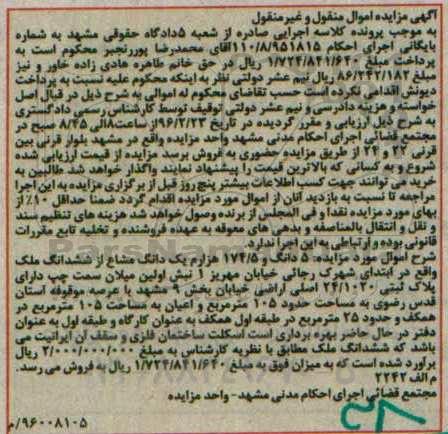 آگهی مزایده اموال منقول و غیرمنقول
به موجب پرونده کلاسه اجرایی صادره از شعبه ۵دادگاه حقوقی مشهد به شماره
بایگانی اجرای احکام ۱۱۰/۸/۹۵۱۸۱۵آقای محمدرضا پوررنجبر محکوم است به
پرداخت مبلغ ۱/۷۲۴/۸۴۱/۶۴۰ ریال در حق خانم طاهره هادی زاده خاور و نیز
مبلغ ۸۶/۲۴۲/۱۸۲ ریال نیم عشر دولتی نظر به اینکه محکوم علیه نسبت به پرداخت
دیونش اقدامی نکرده است حسب تقاضای محکوم له اموالی به شرح ذیل در قبال اصل
خواسته و هزینه دادرسی و نیم عشر دولتی توقیف توسط کارشناس رسمی دادگستری
به شرح ذیل ارزیابی و مقرر گردیده در تاریخ ۹۶/۲/۲۳ از ساعت۸الی ۸/۴۵ صبح در
مجتمع قضائی اجرای احکام مدنی مشهد واحد مزایده واقع در مشهد بلوار قرنی بین
قرنی ۲۲ و ۲۴ از طریق مزایده حضوری به فروش برسد مزایده از قیمت ارزیابی شده
شروع و به کسانی که بالاترین قیمت را پیشنهاد نمایند واگذار خواهد شد طالبین به
خرید می توانند جهت کسب اطلاعات بیشتر پنج روز قبل از برگزاری مزایده به این اجرا
مراجعه تا نسبت به بازدید آنان از اموال مورد مزایده اقدام گردد ضمنا حداقل ۱۰٪ از
بهای مورد مزایده نقدا و فی المجلس از برنده وصول خواهد شد هزینه های تنظیم سند
و نقل و انتقال بالمناصفه و بدهی های معوقه به عهده فروشنده و تخلیه تابع مقررات
قانونی بوده و ارتباطی به این اجرا ندارد
شرح اموال مورد مزایده: ۵ دانگ و ۱۷۴/۵ هزارم یک دانگ مشاع از ششدانگ ملک
واقع در ابتدای شهرک رجائی خیابان مهریز ۱ نبش اولین میلان سمت چپ دارای
پلاک ثبتی ۲۴/۱۰۲۰ اصلی اراضی خیابان بخش ۹ مشهد با عرصه موقوفه آستان
قدس رضوی به مساحت حدود ۱۰۵ مترمربع و اعیان به مساحت ۱۰۵ مترمربع در
همکف و حدود ۲۵ مترمربع در طبقه اول همکف به عنوان کارگاه و طبقه اول به عنوان
دفتر در حال حاضر بهره برداری است اسکلت ساختمان فلزی و سقف آن ایرانیت می
باشد که ششدانگ ملک مطابق با نظریه کارشناس به مبلغ ۲/۰۰۰/۰۰۰/۰۰۰ ریال
برآورد شده است که به میزان فوق به مبلغ ۱/۷۲۴/۸۴۱/۶۴۰ ریال به فروش می رسد.
م الف ۲۲۴۲
مجتمع قضائی اجرای احکام مدنی مشهد- واحد مزایده
۹۶۰۰۸۱۰۵/م